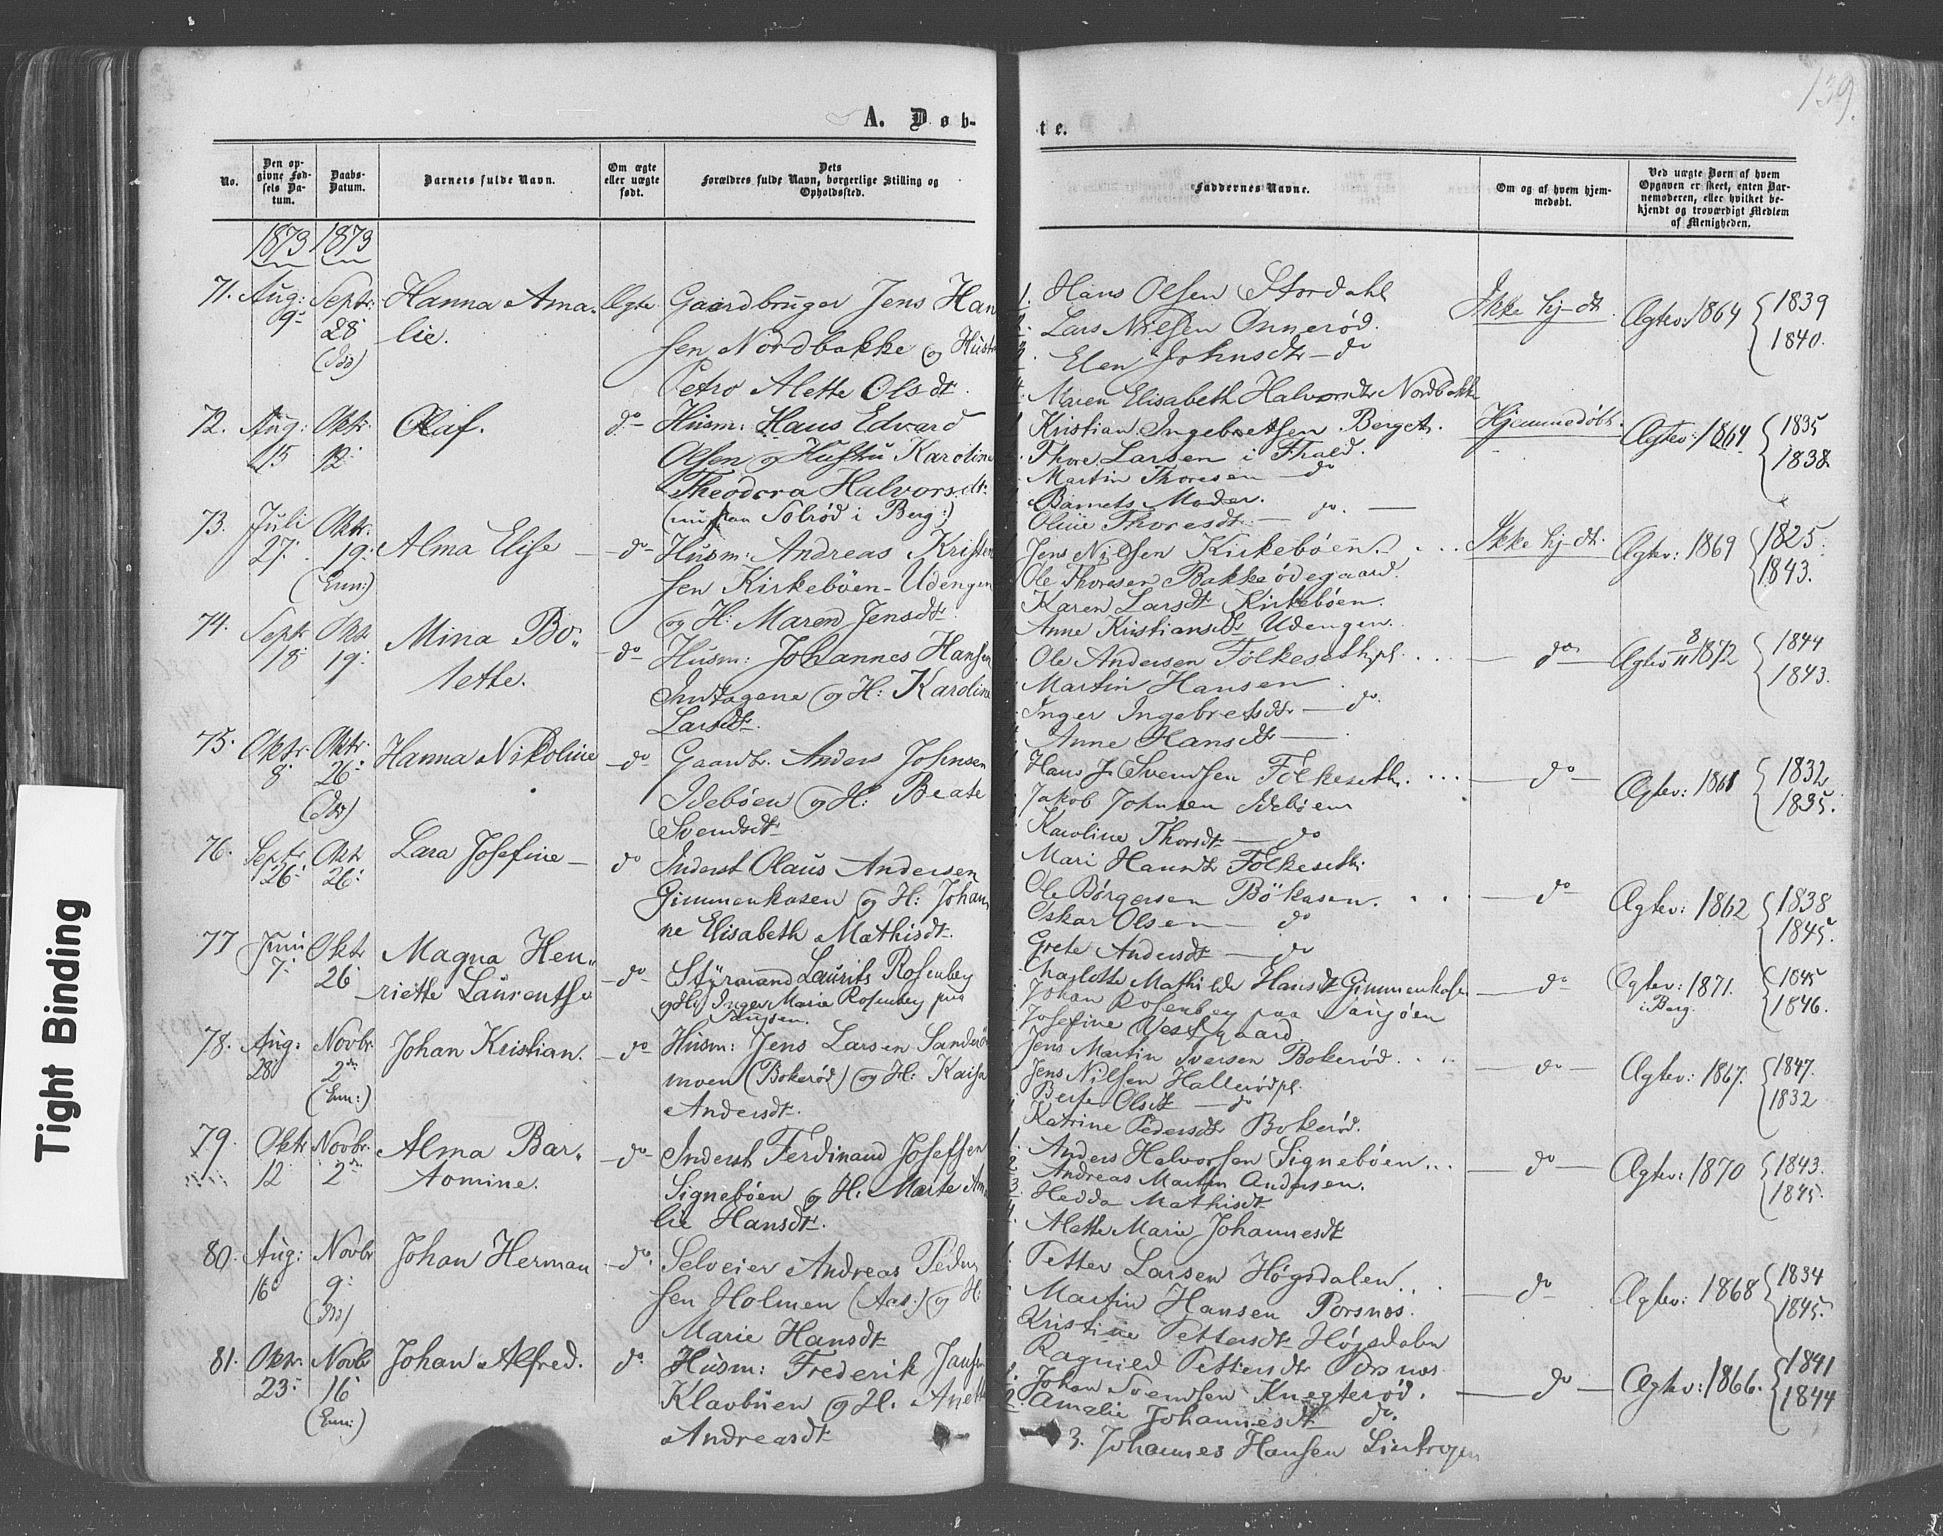 139.
A. Døb-
te.
No.
Den op-
givne Fød-
sels Da-
tum.
Daabs-
Datum.
Barnets fulde Navn.
Om ægte
eller uægte
født.
Dets
Forældres fulde Navn, borgerlige Stilling og
Opholdssted.
Faddernes Navne.
Om og af hvem hjem-
medøbt.
Ved uægte Børn af hvem
Opgaven er skeet, enten Bar-
nemoderen, eller hvilket be-
kjendt og troværdigt Medlem
af Menigheden.
1873 1873
71. Aug: 9. Septr. 28 (Ids)
Hanna Ama-
lie.
Ægte
Gaardbruger Jens Han
sen Nordbakke og Hustr
Petro Alette Olsdt.
1. Hans Olsen Stordahl
2. Lars Nilsen Onnerød.
3. Elen Johnsdtr - do
4. Maren Elisabeth Halvorsdtr Nordbakke
Ikke hj-dt.
Ægtev: 1864 { 1839
1840.
72. Aug: 15 Oktr 12
Olaf.
do
Husm: Hans Edvard
Olsen og Hustru Karoline
Theodora Halvorsdt:
(nu paa Solrød i Berg:)
Kristian Ingebretsen Berget.
Thore Larsen i Frald.
Martin Thoresen - do
Barnets Moder.
Oline Thoresdt. - do. -
Hjemmedøbt.
Ægtev: 1864. { 1835
1838
73. Juli 27. Oktr: 19: (Enn:)
Alma Elise
do
Husm: Andreas Kristen
sen Kirkebøen-Udengen
og H: Maren Jensdt.
Jens Nilsen Kirkebøen.
Ole Thoresen Bakkeødegaard.
Karen Larsdt Kirkebøen.
Anne Kristiansdtr Udengen.
Ikke hj-dt.
Ægtev: 1869 { 1825.
1843.
74. Septr 18. Oktr 19:
Mina Bo-
lette.
do
Husm: Johannes Hansen
og H: Karoline
Larsdt.
Ole Andersen Folkesethpl.
Martin Hansen
Inger Ingebretsdtr - do.
Anne Hansdt -
do
Ægtev 8/11 1872 { 1844
1843.
75. Oktr. 8. Oktr. 26. (Ids)
Hanna Nikoline
do
Gaardbr. Anders Johnsen
Idebøen og H: Beate
Svendsdt.
Hans J. Svendsen Folkeseth.
Jakob Johnsen Idebøen
Karoline Thorsdt - do
Mari Hansdtr Folkeseth.
do
Ægtev: 1861 { 1832
1835.
76. Septr 26. Oktr 26.
Lara Josefine
do
Inderst Olaus Andersen
Gimmenkasen og H: Johan
ne Elisabeth Mathisdt.
Ole Børgersen Bökasen.
Oskar Olsen - do
Grete Andersdt - do
Charlotte Mathilde Hansdt Gimmenkasen
do
Ægtev: 1862 { 1838
1845.
77 Juni 7. Oktr 26
Magna Hen-
riette Laurentse
do
Styrmand Laurits Rosenberg
og H: Inger Marie Rosenberg paa
Johan Rosenberg paa Saugøen
Josefine Vestgaard
do
Ægtev: 1871.
i Berg. { 1845
1846.
78. Aug: 28 Novbr. 2den (Enn:)
Johan Kristian.
do
Husm: Jens Larsen Sanderø
moen (Bokerød) og H: Kaisa
Andersdt.
Jens Martin Iversen Bokerød
Jens Nilsen Hallerødpl.
Berte Olsdt - do
Katrine Pedersdtr Bokerød.
do
Ægtev: 1867. { 1847.
1832
79. Oktr 12 Novbr. 2den
Alma Bar-
tomine.
do
Inderst Ferdinand Josefsen
Signebøen og H: Marte Am
lie Hansdt.
1. Anders Halvorsen Signebøen
2. Andreas Martin Andersen.
3. Hedda Mathisdt
4. Alette Marie Johannesdt
do
Ægtev: 1870 { 1843.
1845.
80. Aug: 16 Novbr 9: (Ids)
Johan Herman
do.
Selveier Andreas Peder
sen Holmen (Aas:) og H:
Marie Hansdt
Petter Larsen Høgsdalen
Martin Hansen Porsnes.
Kristine Pettersdt Høgsdalen
Ragnild Pettersdtr Porsnes
do
Ægtev: 1868 { 1834
1845.
81. Oktr. 23. Novbr 16 (Enn:)
Johan Alfred.
do
Husm: Frederik Jansen
Klavbuen og H. Anette
Andreasdt
1. Johan Svendsen Knegterød.
2. Amalie Johannesdt do.
3. Johannes Hansen
do
Ægtev: 1866. { 1841
1844
Tight Binding